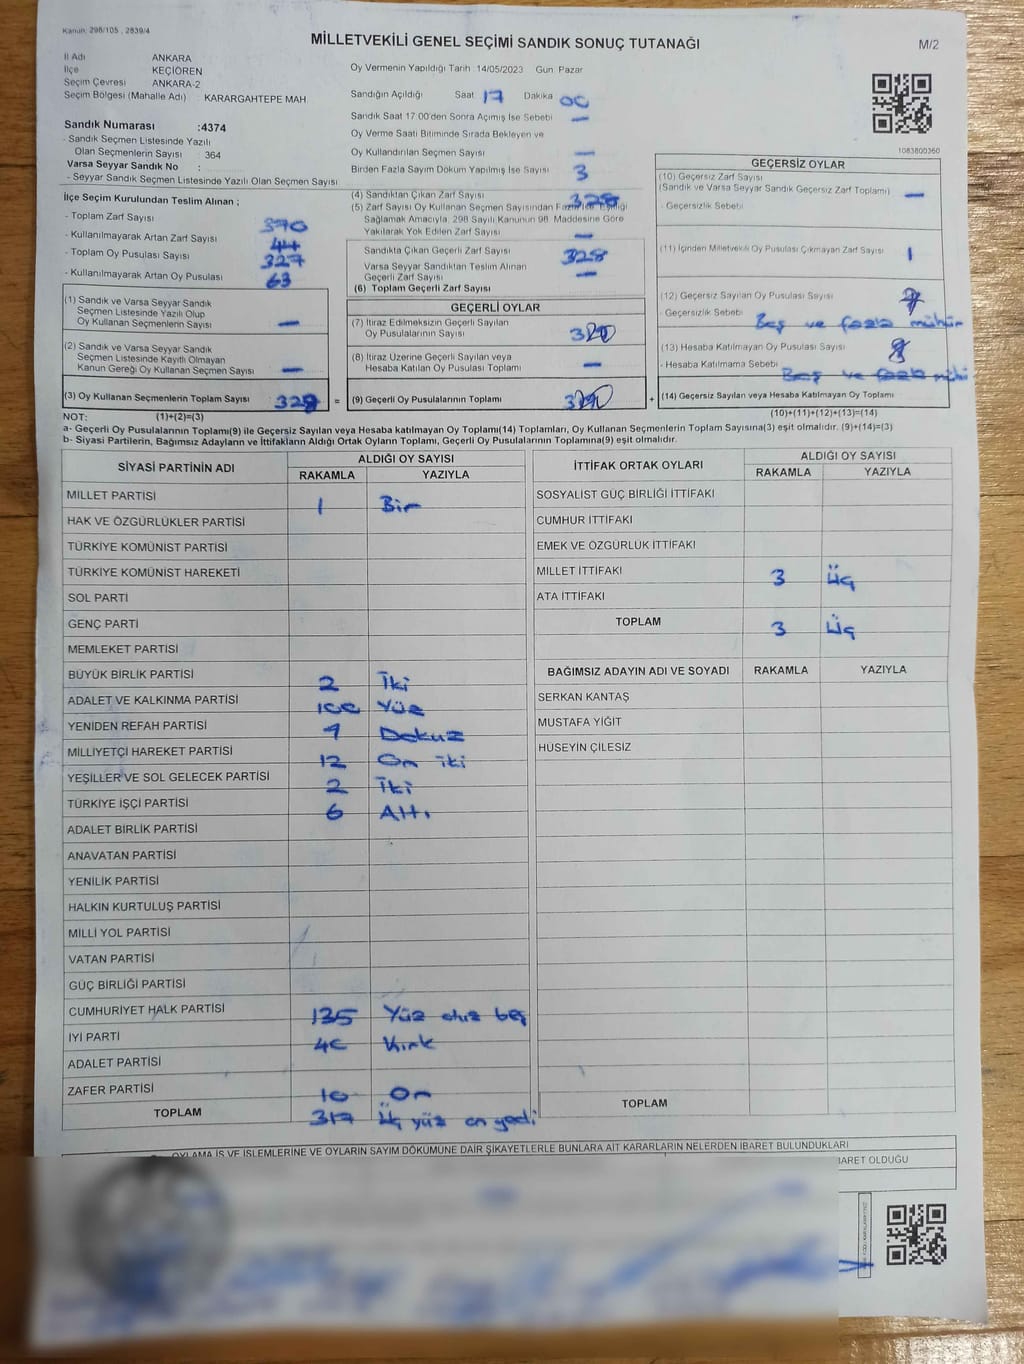 Kanun: 298/105 , 2839/4
MİLLETVEKİLİ GENEL SEÇİMİ SANDIK SONUÇ TUTANAĞI
M/2
İl Adı ANKARA
İlçe KEÇİÖREN
Seçim Çevresi ANKARA-2
Seçim Bölgesi (Mahalle Adı) : KARARGAHTEPE MAH.
Oy Vermenin Yapıldığı Tarih 14/05/2023 Gün Pazar
Sandığın Açıldığı Saat 17 Dakika 00
Sandık Saat 17:00'den Sonra Açımış İse Sebebi —
Oy Verme Saati Bitiminde Sırada Bekleyen ve
Oy Kullandırılan Seçmen Sayısı —
Birden Fazla Sayım Döküm Yapılmış İse Sayısı 3
1083800360
Sandık Numarası :4374
- Sandık Seçmen Listesinde Yazılı
Olan Seçmenlerin Sayısı : 364
Varsa Seyyar Sandık No :
- Seyyar Sandık Seçmen Listesinde Yazılı Olan Seçmen Sayısı
İlçe Seçim Kurulundan Teslim Alınan ;
- Toplam Zarf Sayısı 370
- Kullanılmayarak Artan Zarf Sayısı 44
- Toplam Oy Pusulası Sayısı 327
- Kullanılmayarak Artan Oy Pusulası 63
(1) Sandık ve Varsa Seyyar Sandık
Seçmen Listesinde Yazılı Olup
Oy Kullanan Seçmenlerin Sayısı —
(2) Sandık ve Varsa Seyyar Sandık
Seçmen Listesinde Kayıtlı Olmayan
Kanun Gereği Oy Kullanan Seçmen Sayısı —
(3) Oy Kullanan Seçmenlerin Toplam Sayısı 328 =
(4) Sandıktan Çıkan Zarf Sayısı 328
(5) Zarf Sayısı Oy Kullanan Seçmen Sayısından Fazla İse Eşitliği
Sağlamak Amacıyla, 298 Sayılı Kanunun 98. Maddesine Göre
Yakılarak Yok Edilen Zarf Sayısı —
Sandıkta Çıkan Geçerli Zarf Sayısı 328
Varsa Seyyar Sandıktan Teslim Alınan
Geçerli Zarf Sayısı —
(6) Toplam Geçerli Zarf Sayısı
GEÇERLİ OYLAR
(7) İtiraz Edilmeksizin Geçerli Sayılan
Oy Pusulalarının Sayısı
(8) İtiraz Üzerine Geçerli Sayılan veya
Hesaba Katılan Oy Pusulası Toplamı —
(9) Geçerli Oy Pusulalarının Toplamı +
GEÇERSİZ OYLAR
(10) Geçersiz Zarf Sayısı
(Sandık ve Varsa Seyyar Sandık Geçersiz Zarf Toplamı) —
- Geçersizlik Sebebi
(11) İçinden Milletvekili Oy Pusulası Çıkmayan Zarf Sayısı 1
(12) Geçersiz Sayılan Oy Pusulası Sayısı
- Geçersizlik Sebebi Boş ve fazla mühür
(13) Hesaba Katılmayan Oy Pusulası Sayısı
- Hesaba Katılmama Sebebi Boş ve fazla
(14) Geçersiz Sayılan veya Hesaba Katılmayan Oy Toplamı
(10)+(11)+(12)+(13)=(14)
NOT: (1)+(2)=(3)
a- Geçerli Oy Pusulalarının Toplamı(9) ile Geçersiz Sayılan veya Hesaba katılmayan Oy Toplamı(14) Toplamları, Oy Kullanan Seçmenlerin Toplam Sayısına(3) eşit olmalıdır. (9)+(14)=(3)
b- Siyasi Partilerin, Bağımsız Adayların ve İttifakların Aldığı Ortak Oyların Toplamı, Geçerli Oy Pusulalarının Toplamına(9) eşit olmalıdır.
SİYASİ PARTİNİN ADI ALDIĞI OY SAYISI
RAKAMLA YAZIYLA
MİLLET PARTİSİ 1 Bir
HAK VE ÖZGÜRLÜKLER PARTİSİ
TÜRKİYE KOMÜNİST PARTİSİ
TÜRKİYE KOMÜNİST HAREKETİ
SOL PARTİ
GENÇ PARTİ
MEMLEKET PARTİSİ
BÜYÜK BİRLİK PARTİSİ 2 İki
ADALET VE KALKINMA PARTİSİ 100 Yüz
YENİDEN REFAH PARTİSİ 9 Dokuz
MİLLİYETÇİ HAREKET PARTİSİ 12 On iki
YEŞİLLER VE SOL GELECEK PARTİSİ 2 İki
TÜRKİYE İŞÇİ PARTİSİ 6 Altı
ADALET BİRLİK PARTİSİ
ANAVATAN PARTİSİ
YENİLİK PARTİSİ
HALKIN KURTULUŞ PARTİSİ
MİLLİ YOL PARTİSİ
VATAN PARTİSİ
GÜÇ BİRLİĞİ PARTİSİ
CUMHURİYET HALK PARTİSİ 135 Yüz otuz beş
İYİ PARTİ 40 Kırk
ADALET PARTİSİ
ZAFER PARTİSİ 10 On
TOPLAM 317 Üç yüz on yedi
İTTİFAK ORTAK OYLARI ALDIĞI OY SAYISI
RAKAMLA YAZIYLA
SOSYALİST GÜÇ BİRLİĞİ İTTİFAKI
CUMHUR İTTİFAKI
EMEK VE ÖZGÜRLÜK İTTİFAKI
MİLLET İTTİFAKI 3 Üç
ATA İTTİFAKI
TOPLAM 3 Üç
BAĞIMSIZ ADAYIN ADI VE SOYADI RAKAMLA YAZIYLA
SERKAN KANTAŞ
MUSTAFA YİĞİT
HÜSEYİN ÇİLESİZ
TOPLAM
OYLAMA İŞ VE İŞLEMLERİNE VE OYLARIN SAYIM DÖKÜMÜNE DAİR ŞİKAYETLERLE BUNLARA AİT KARARLARIN NELERDEN İBARET BULUNDUKLARI
İBARET OLDUĞU